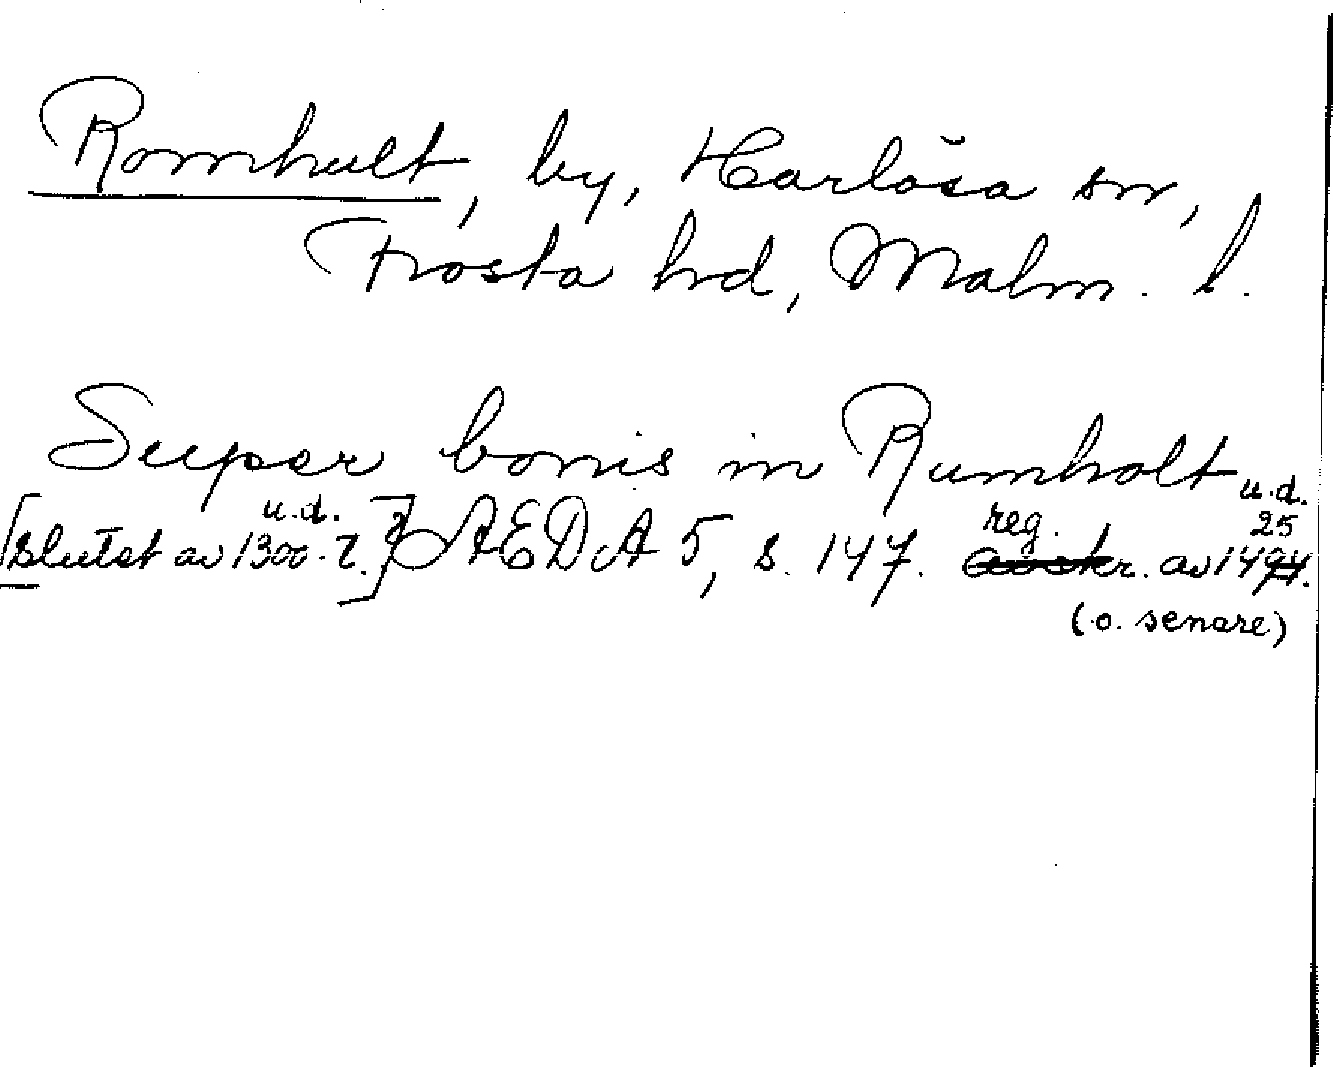 Romhult, by, Harlösa sn,
Frosta hd, Malm. l.
Super bonis in Rumholt u.d.
[slutet av 1300-t.] u.d. AEDA 5, s. 147. reg. av 1425
(o. senare)